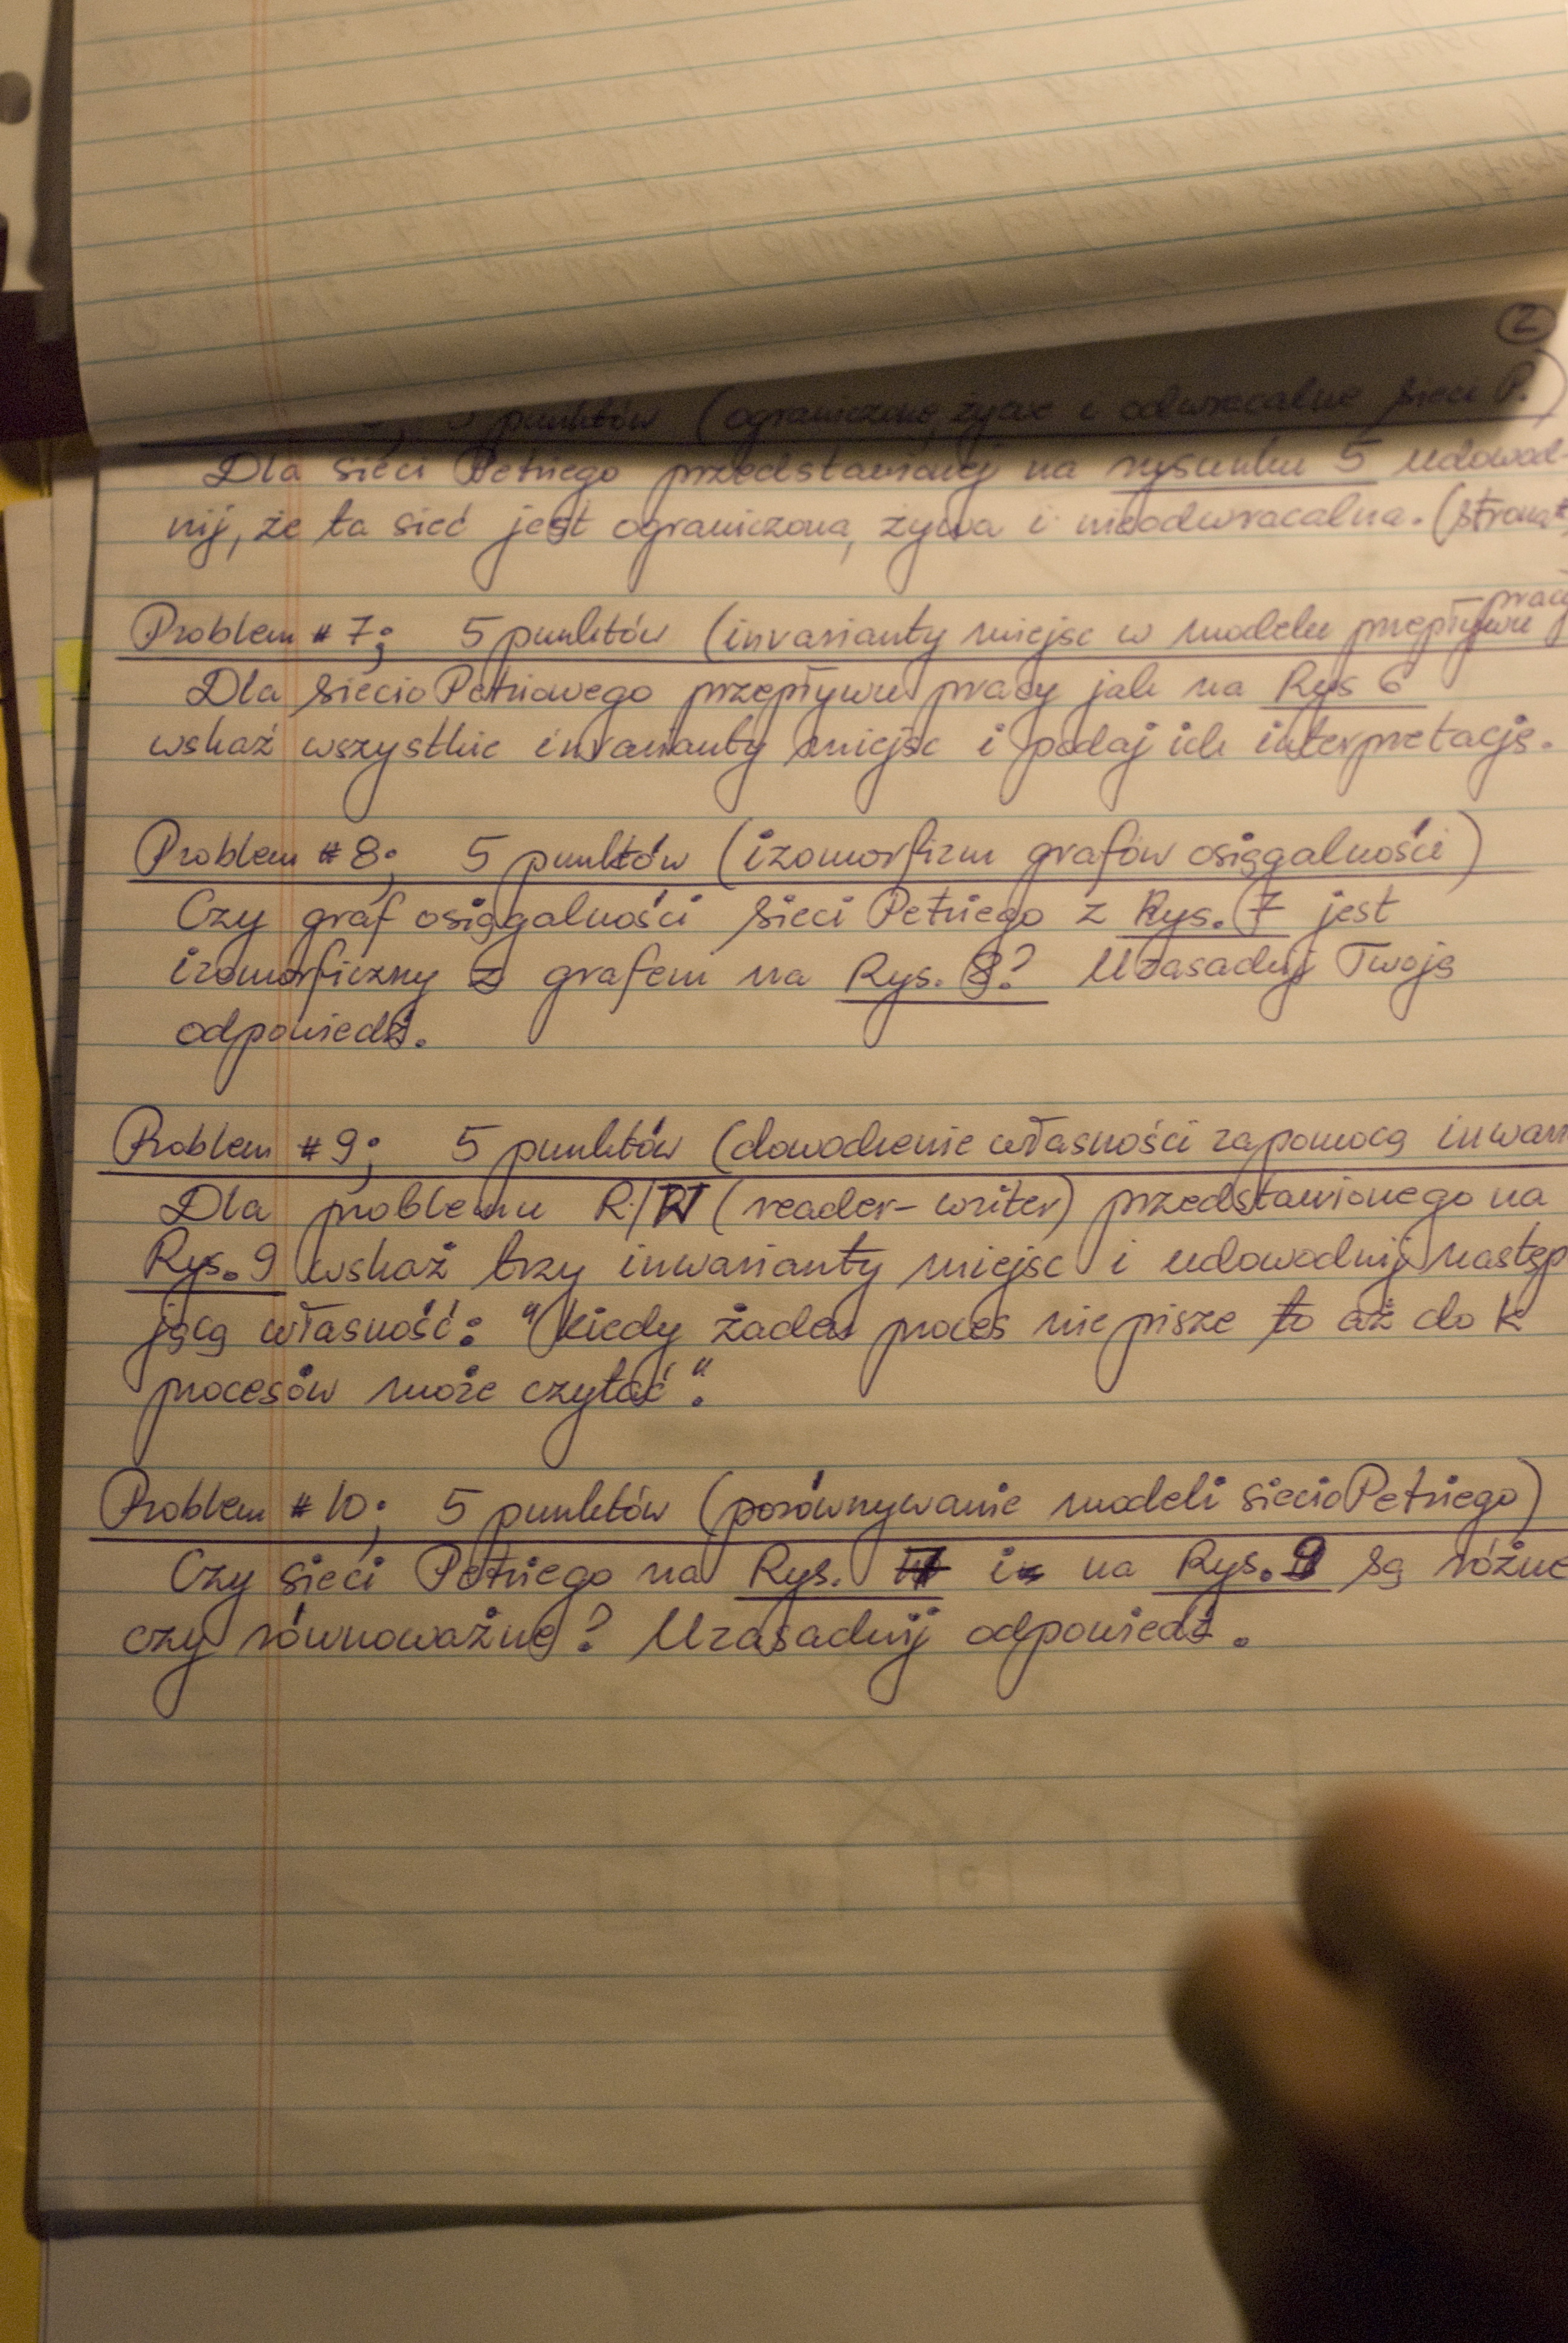 2
5 punktów (ograniczone, żywe i odwracalne sieci P.)
Dla sieci Petriego przedstawionej na rysunku 5 udowod-
nij, że ta sieć jest ograniczona, żywa i nieodwracalna. (strona
Problem # 7; 5 punktów (invarianty miejsc w modelu przepływu pracy
Dla siecioPetriowego przepływu pracy jak na Rys 6
wskaż wszystkie invarianty miejsc i podaj ich interpretację.
Problem # 8; 5 punktów (izomorfizm grafów osiągalności)
Czy graf osiągalności sieci Petriego z Rys. 7 jest
izomorficzny z grafem na Rys. 8? Uzasadnij Twoją
odpowiedź.
Problem # 9; 5 punktów (dowodzenie własności za pomocą inwari
Dla problemu R/W (reader-writer) przedstawionego na
Rys. 9 wskaż trzy inwarianty miejsc i udowodnij następ
jącą własność: "Kiedy żaden proces nie pisze to aż do k
procesów może czytać".
Problem # 10; 5 punktów (porównywanie modeli siecioPetriego)
Czy sieci Petriego na Rys. i na Rys. 9 są różne
czy równoważne? Uzasadnij odpowiedź.